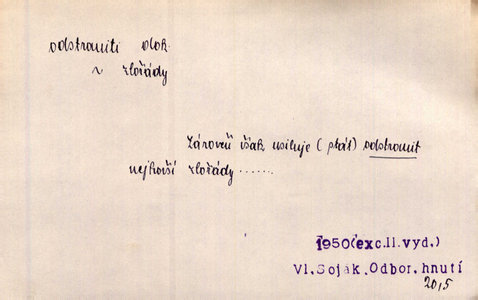 odstraniti dok.
v zlořády
zároveň však usiluje (stát) odstranit
nejhorší zlořády ......
1950(exc.II.vyd.)
Vl.Soják.Odbor.hnutí
20,5